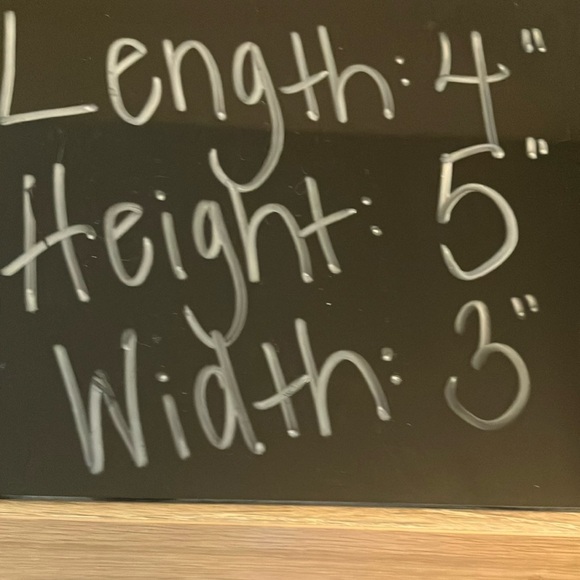 Length: 4"
Height: 5"
Width: 3"